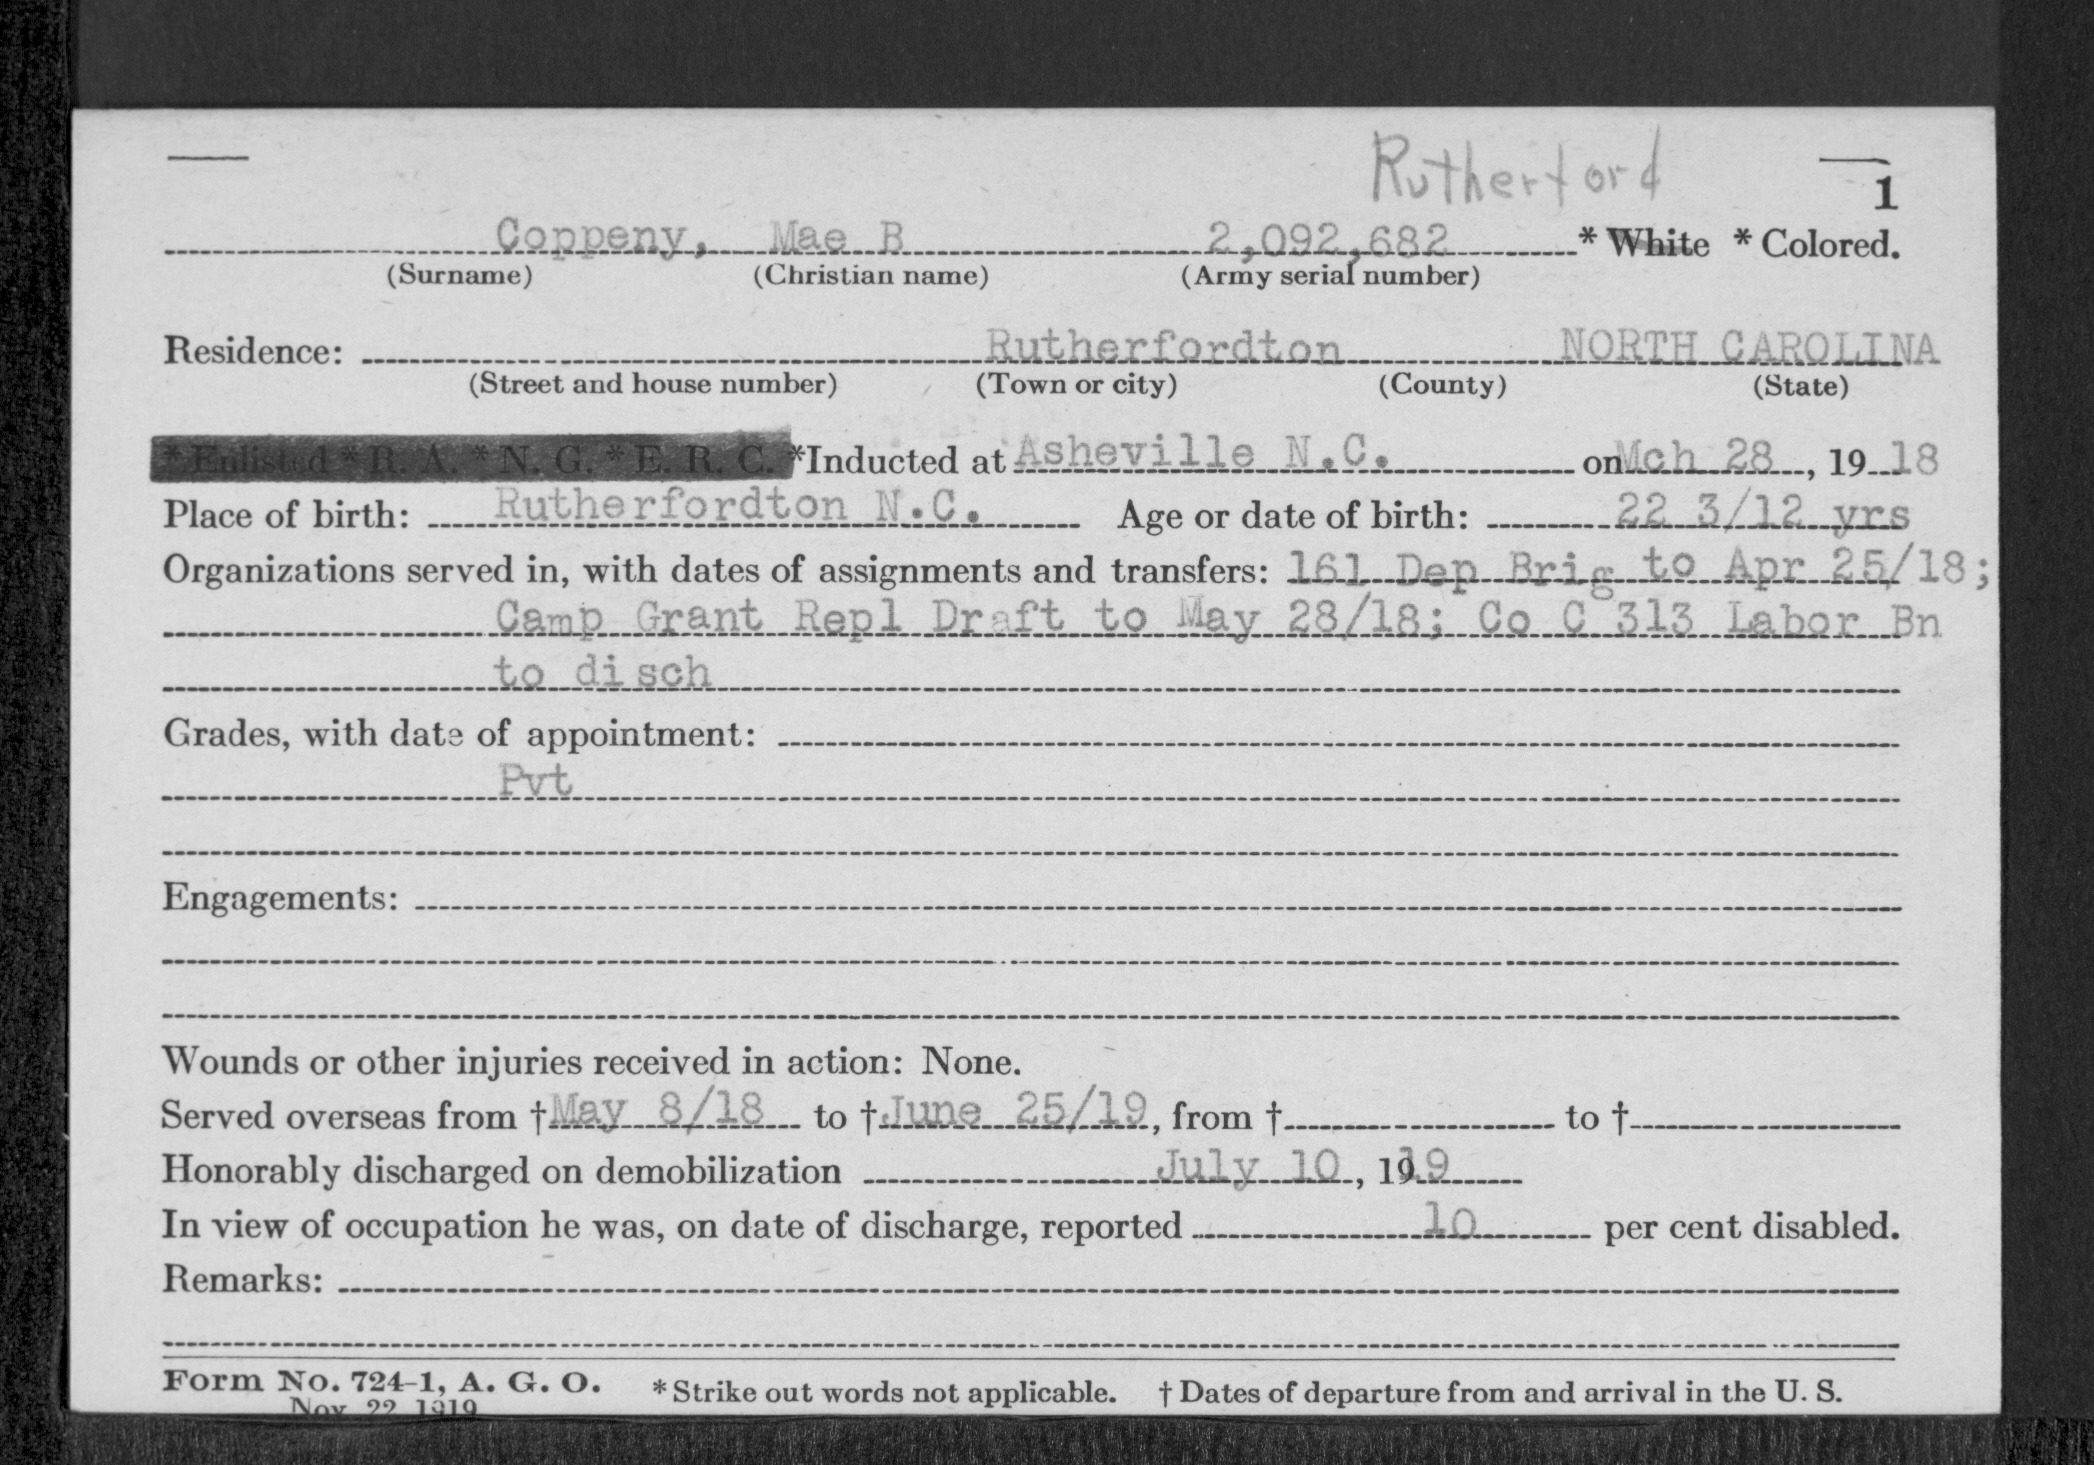 Rutherford
1
Coppeny, Mae B 2,092,682 * White * Colored.
(Surname) (Christian name) (Army serial number)
Residence: Rutherfordton NORTH CAROLINA
(Street and house number) (Town or city) (County) (State)
* Enlisted * R. A. * N. G. * E. R. C. *Inducted at Asheville N.C. on Mch 28, 19 18
Place of birth: Rutherfordton N.C. Age or date of birth: 22 3/12 yrs
Organizations served in, with dates of assignments and transfers: 161 Dep Brig to Apr 25/18;
Camp Grant Repl Draft to May 28/18; Co C 313 Labor Bn
to disch
Grades, with date of appointment:
Pvt
Engagements:
Wounds or other injuries received in action: None.
Served overseas from † May 8/18 to † June 25/19, from † to †
Honorably discharged on demobilization July 10, 19 19
In view of occupation he was, on date of discharge, reported 10 per cent disabled.
Remarks:
Form No. 724-1, A. G. O. * Strike out words not applicable. † Dates of departure from and arrival in the U. S.
Nov. 22 1919